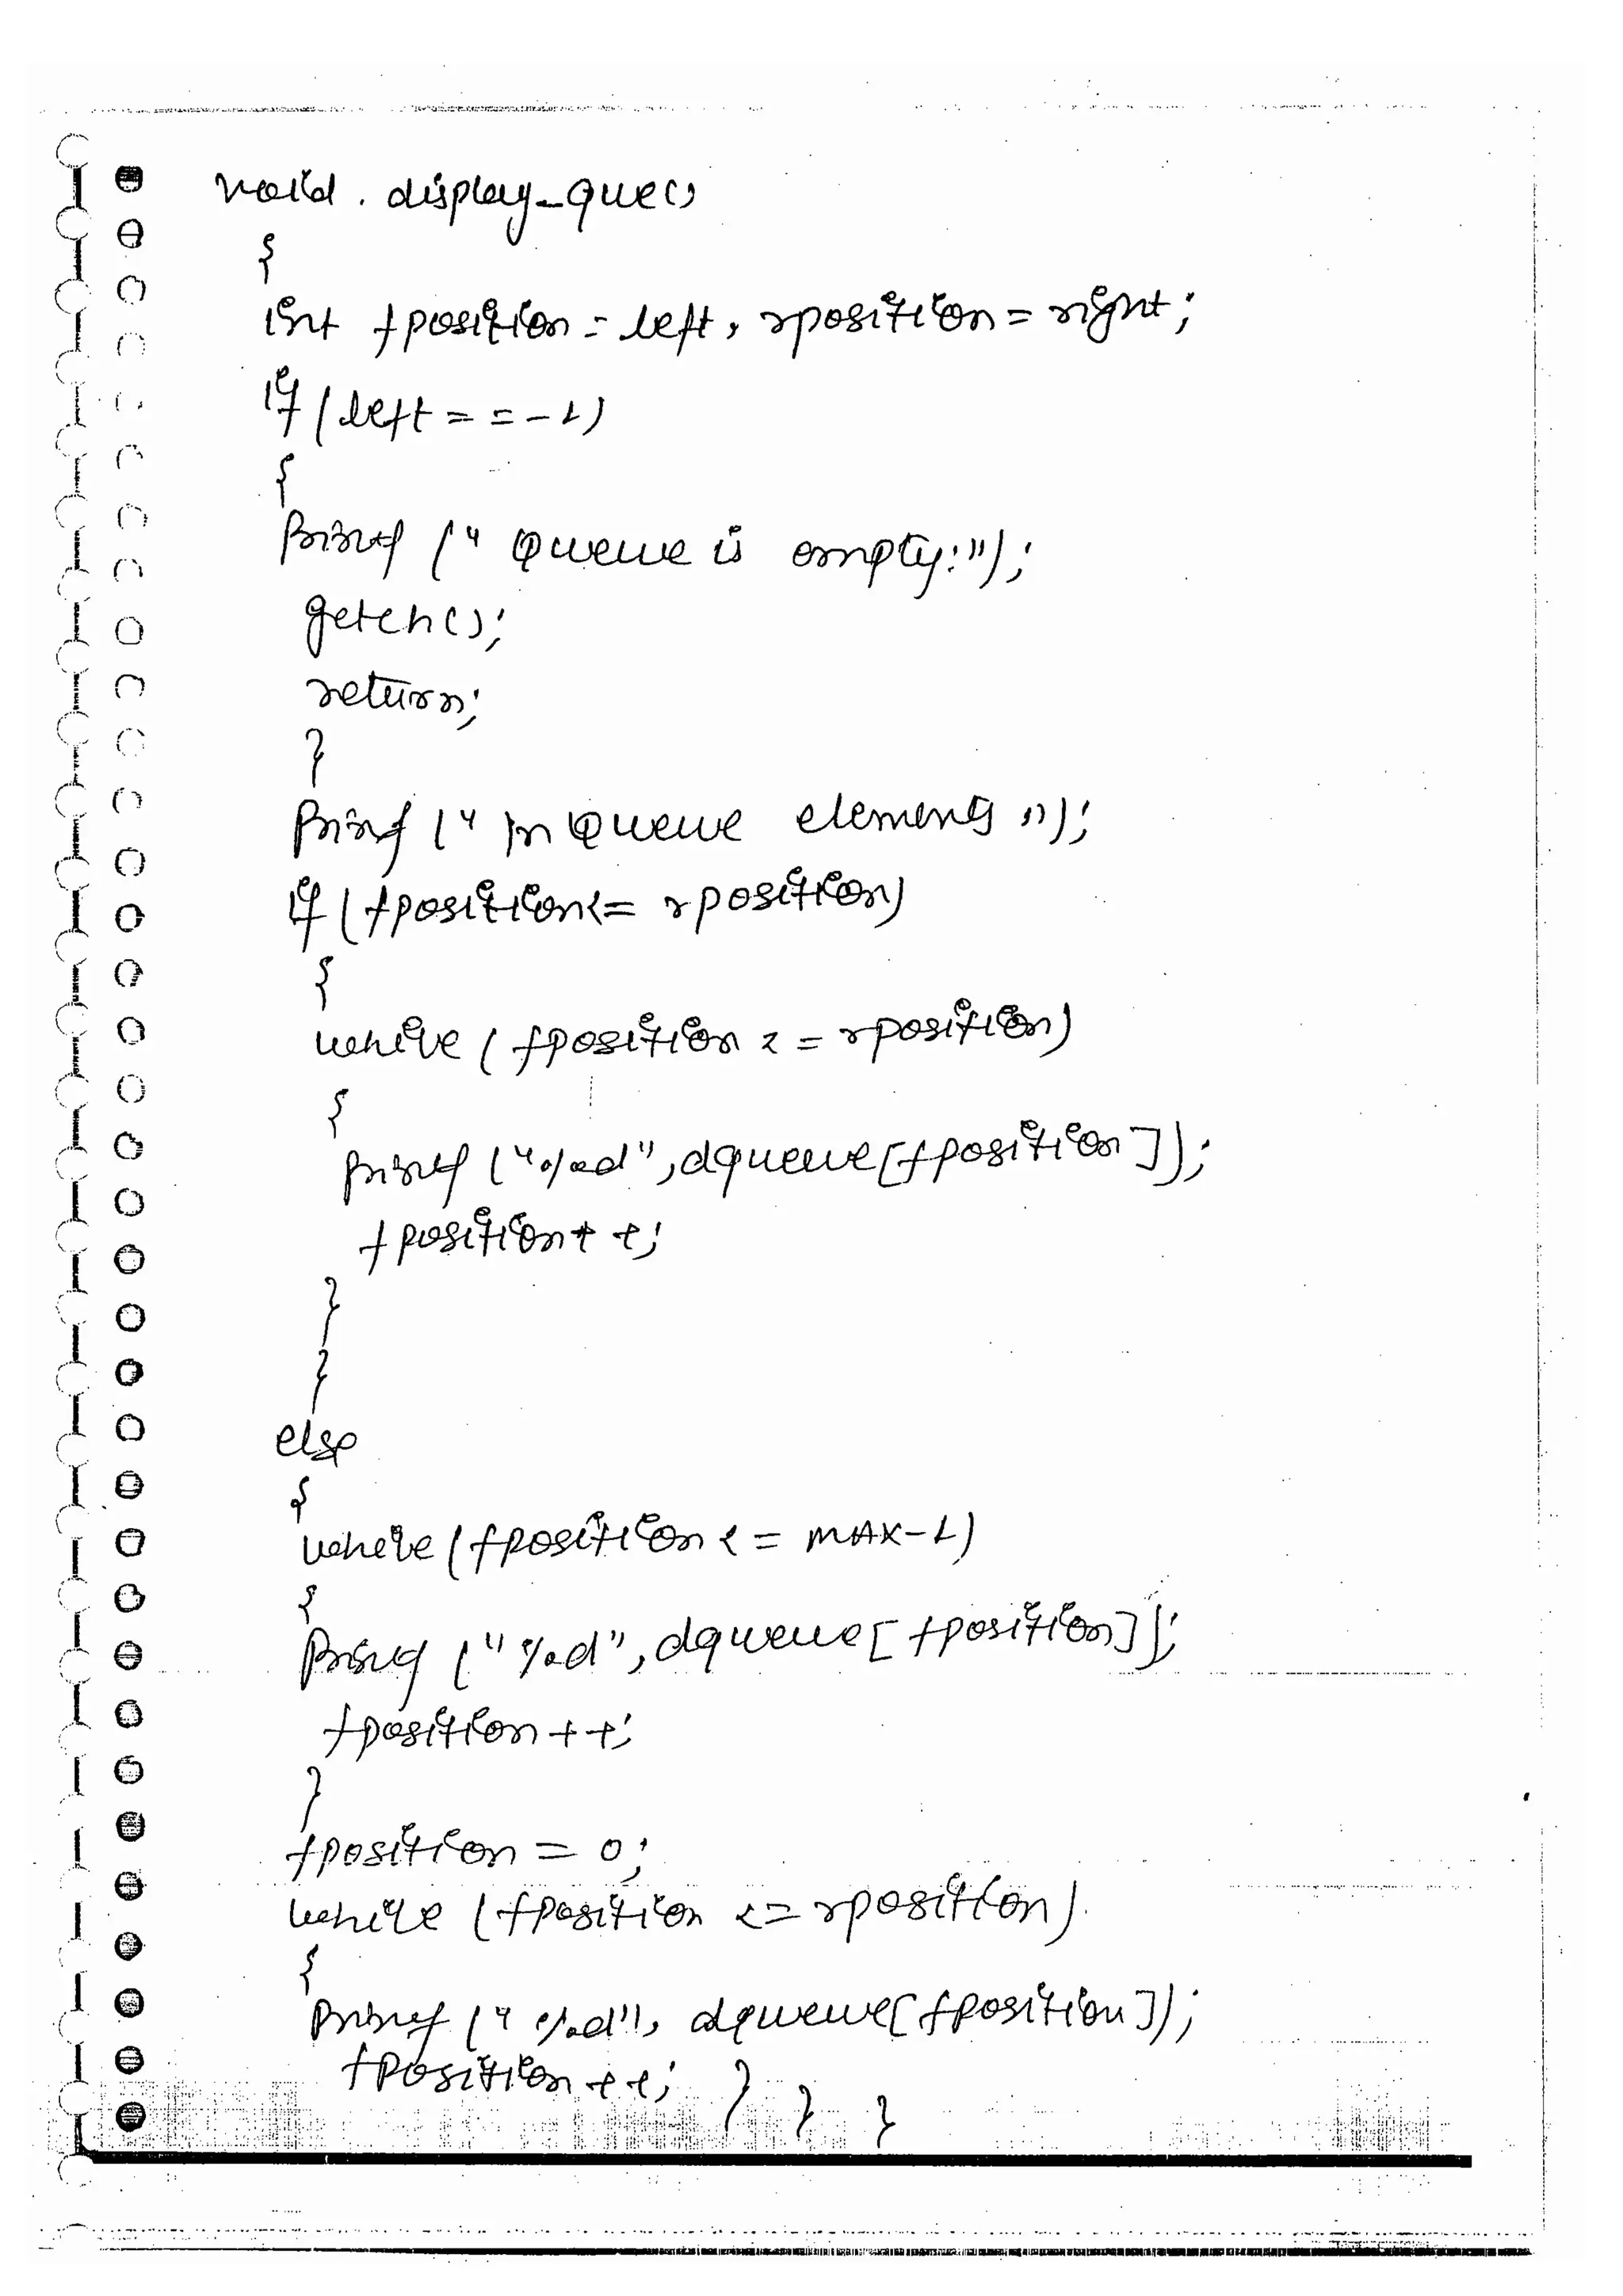 void. display_que()
{
int fposition = left, rposition = right;
if (left = = -1)
{
printf (" Queue is empty:");
getch();
return;
}
printf (" \n Queue elements ");
if (fposition <= rposition)
{
while (fposition < = rposition)
{
printf ("%d", dqueue[fposition]);
fposition + +;
}
}
else
{
while (fposition < = MAX-1)
{
printf ("%d", dqueue[fposition]);
fposition ++;
}
fposition = 0;
while (fposition <= rposition)
{
printf ("%d", dqueue[fposition]);
fposition ++; } } }